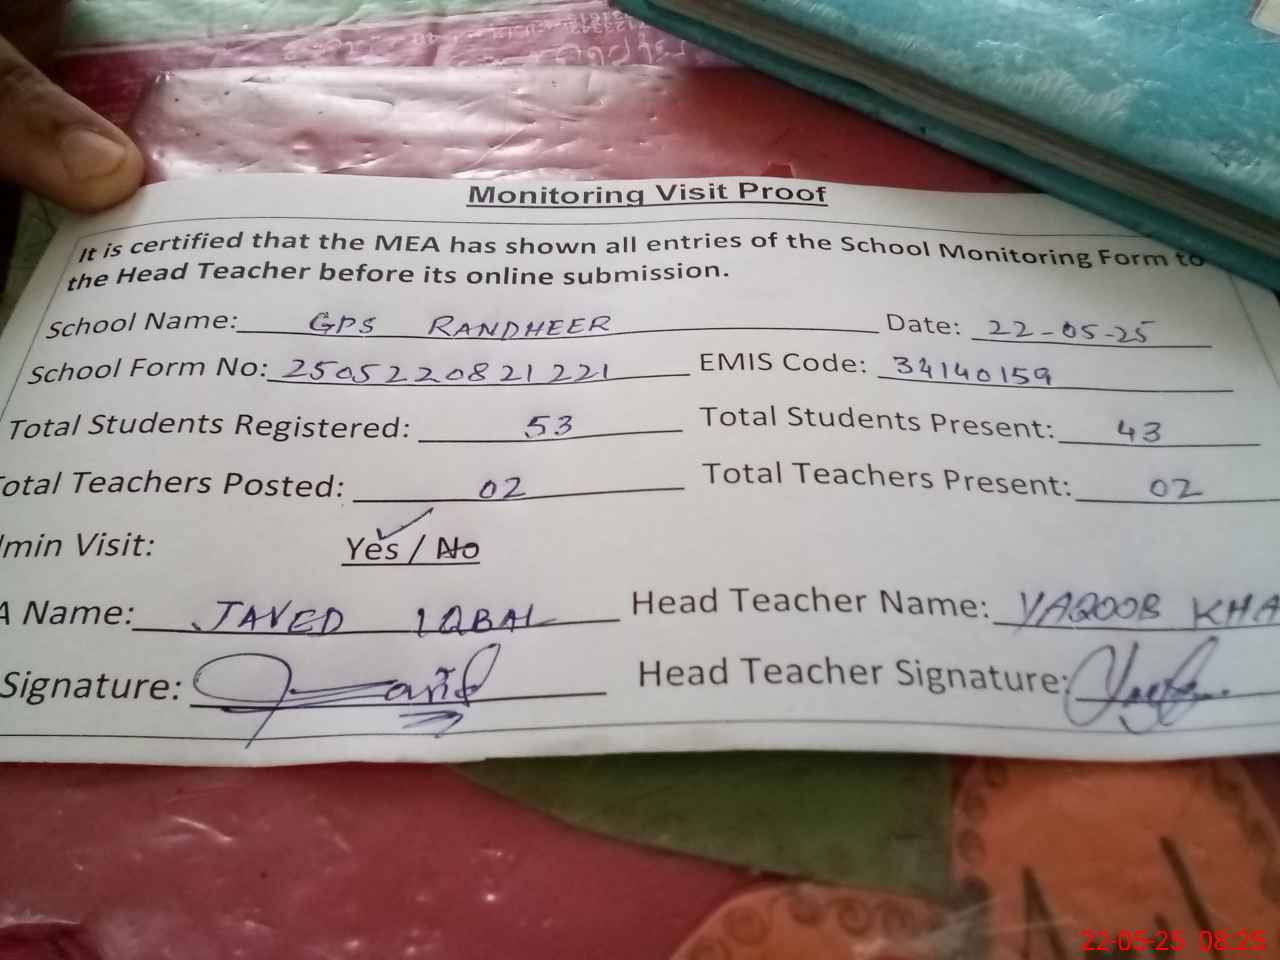 Monitoring Visit Proof
It is certified that the MEA has shown all entries of the School Monitoring Form to
the Head Teacher before its online submission.
School Name: GPS RANDHEER Date: 22-05-25
School Form No: 2505220821221 EMIS Code: 34140159
Total Students Registered: 53 Total Students Present: 43
otal Teachers Posted: 02 Total Teachers Present: 02
min Visit: Yes / No
A Name: JAVED IQBAL Head Teacher Name: YAQOOB KHA
Signature: Head Teacher Signature:
22-05-25 08:25